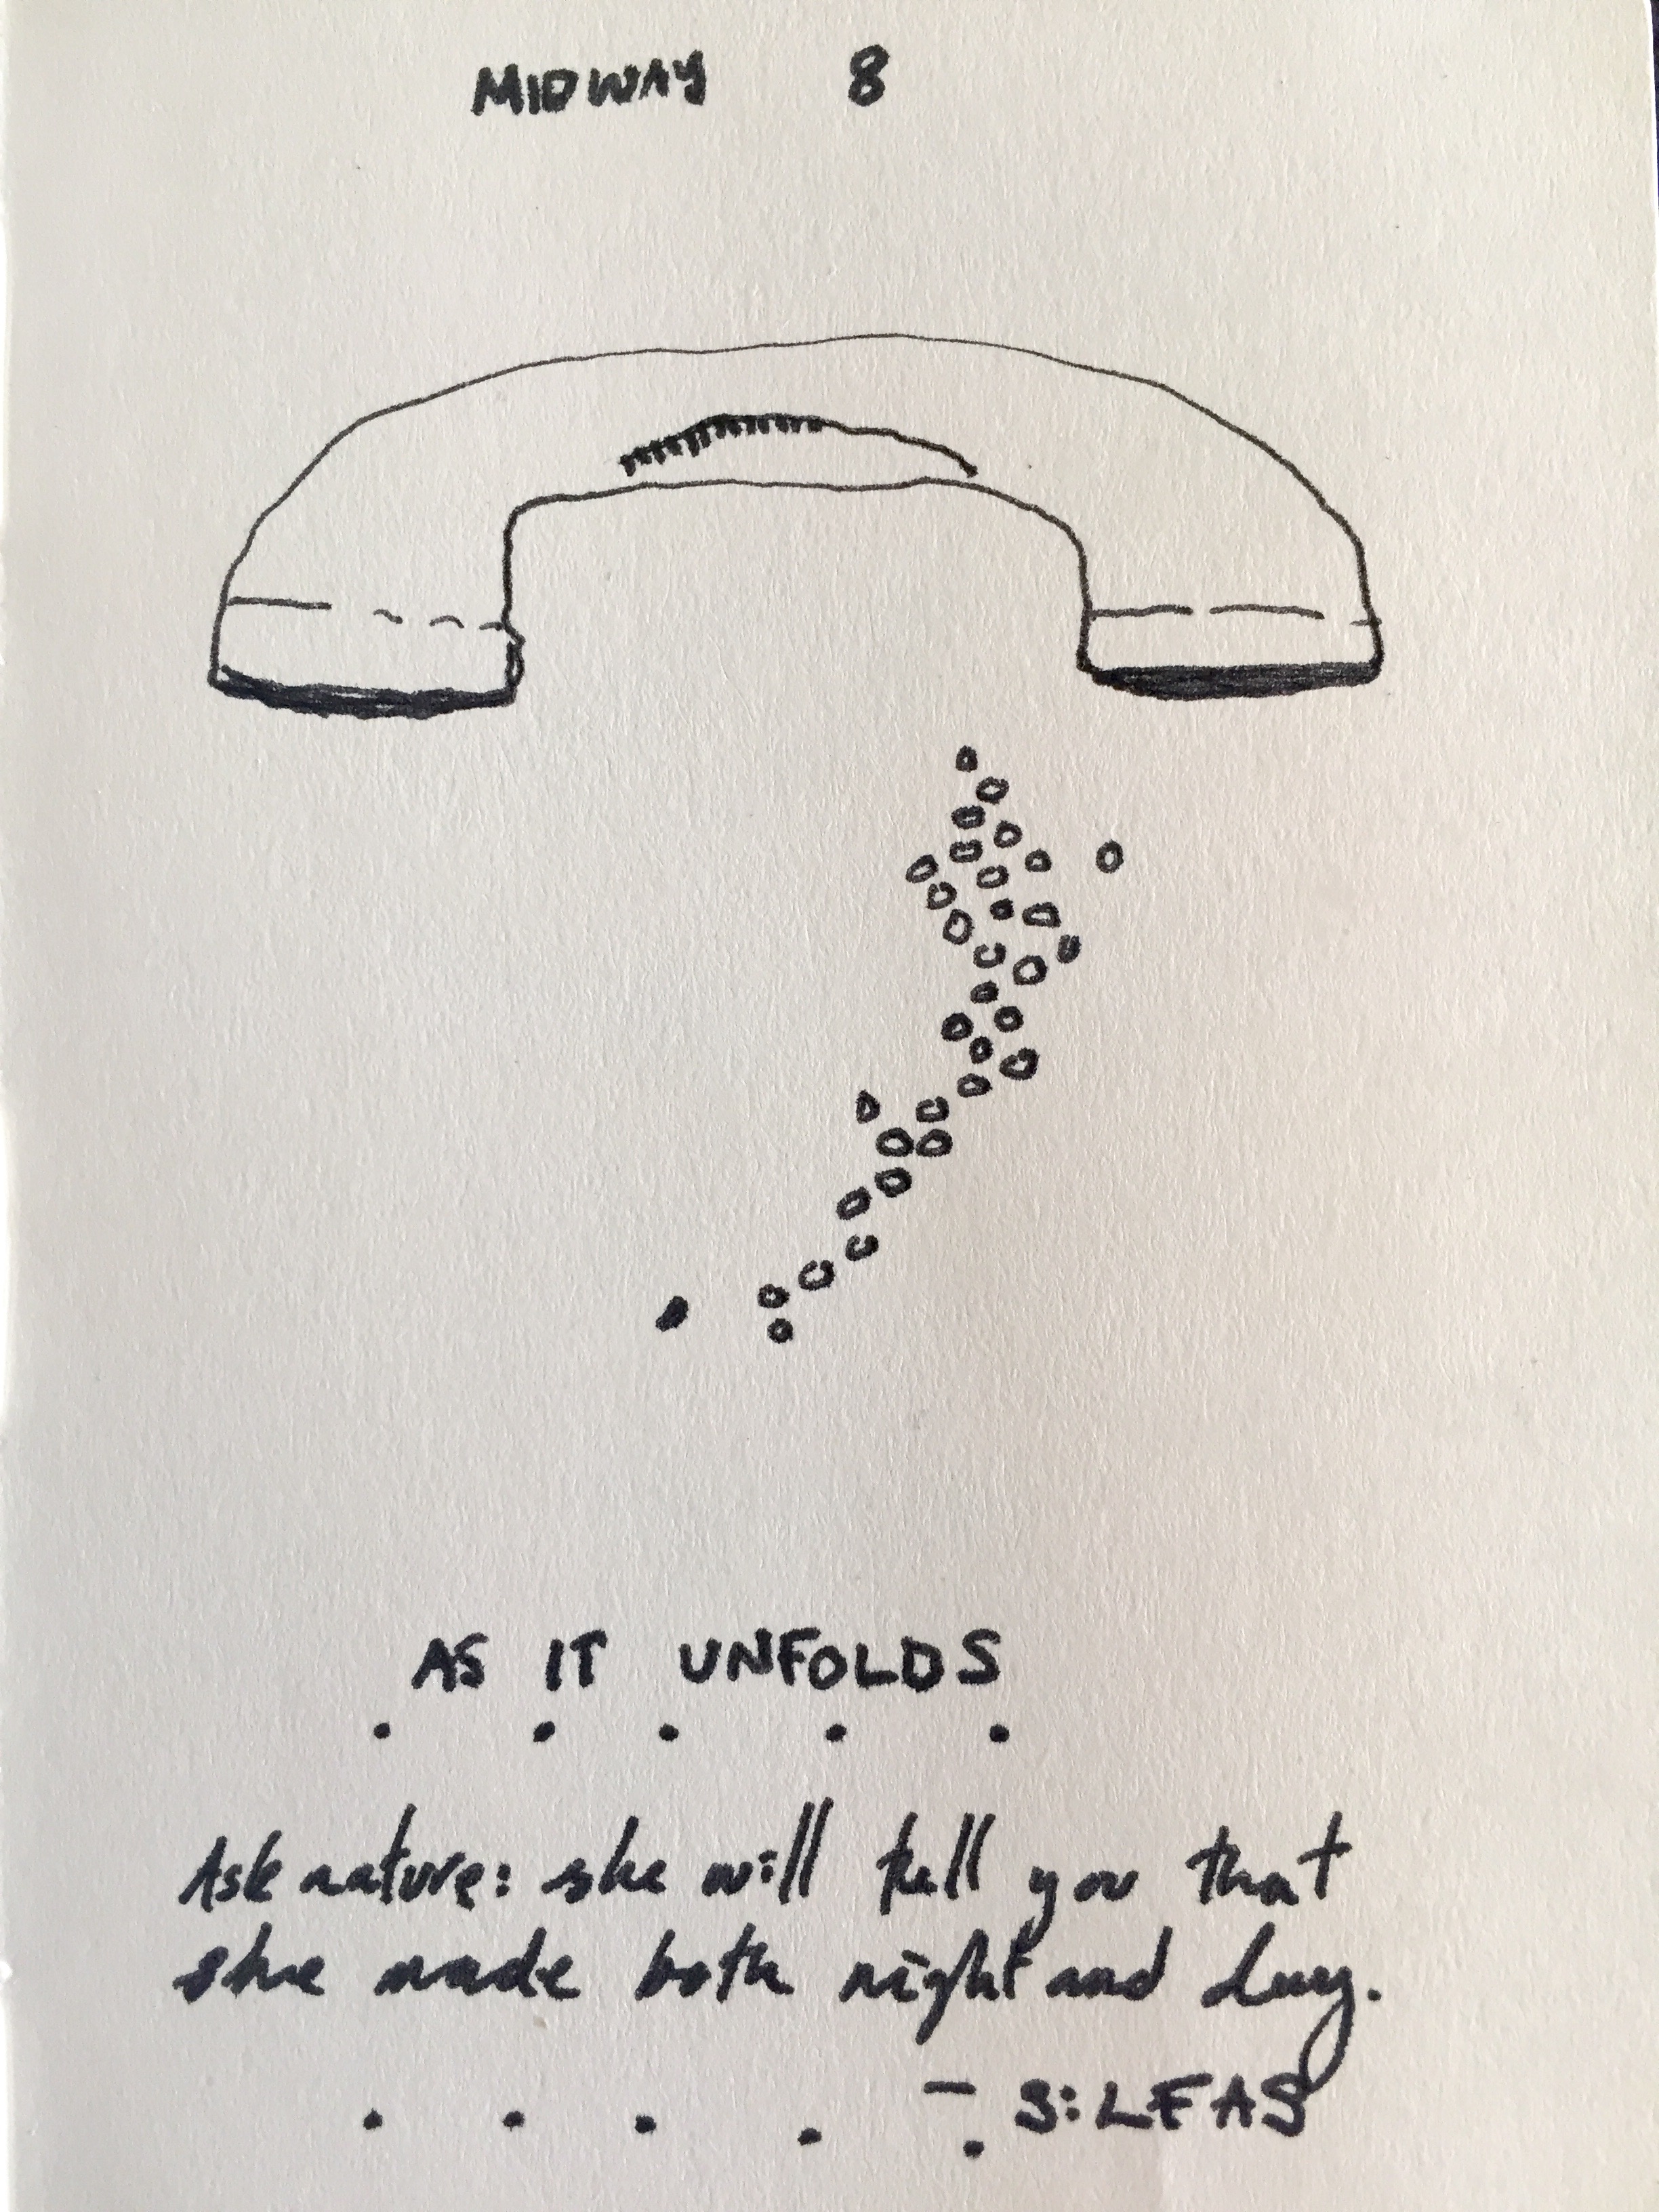 MIDWAY 8
AS IT UNFOLDS
Ask nature: she will tell you that
she made both night and day.
- S:LFAS